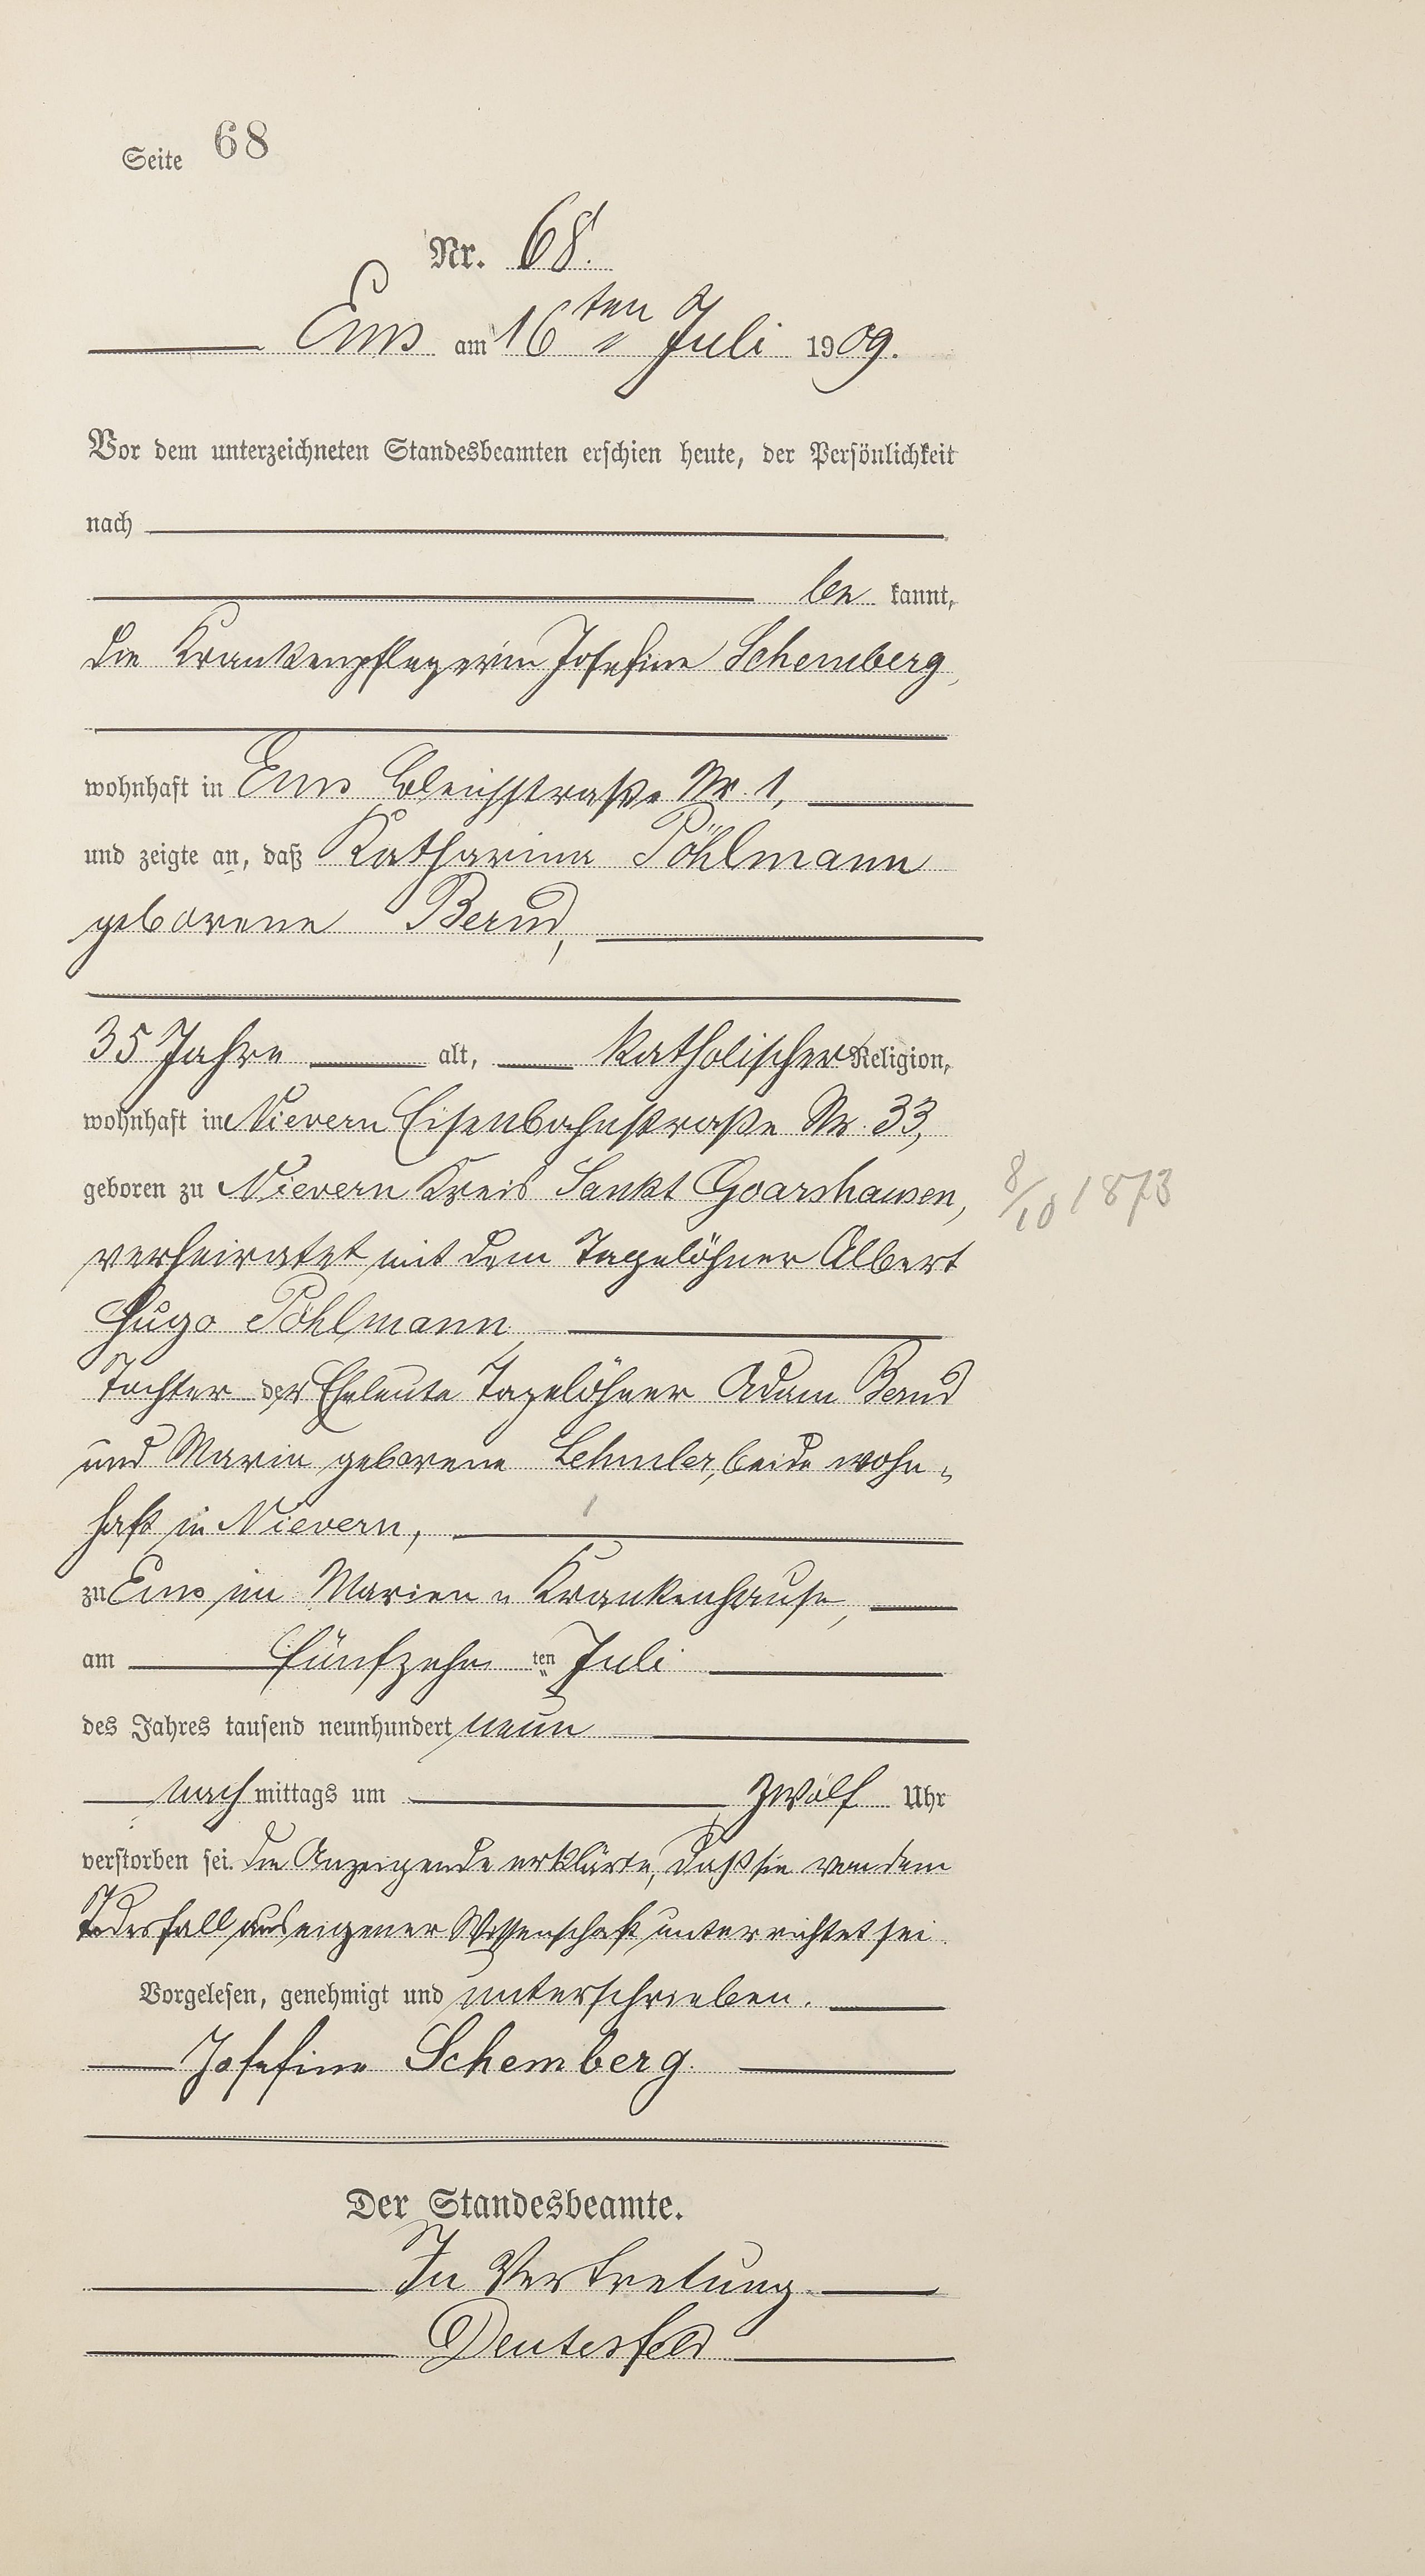 Seite 68
Nr. 68.
Ems am 16ten Juli 1909.
Vor dem unterzeichneten Standesbeamten erschien heute, der Persönlichkeit
nach
be kannt,
die Krankenpflegerin Josefine Schemberg,
wohnhaft in Ems Bleichstraße Nr. 1,
und zeigte an, daß Katharina Pöhlmann
geborene Bernd,
35 Jahre alt, katholischer Religion,
wohnhaft in Nievern Eisenbahnstraße Nr. 33,
geboren zu Nievern Kreis Sankt Goarshausen, 8/10 1873
verheiratet mit dem Tagelöhner Albert
Hugo Pöhlmann,
Tochter der Eheleute Tagelöhner Adam Bernd
und Maria geborene Lehmler, beide wohn-
haft in Nievern,
zu Ems im Marien-Krankenhause,
am fünfzehn ten Juli
des Jahres tausend neunhundert neun
nach mittags um zwölf Uhr
verstorben sei. Die Anzeigende erklärte, daß sie von dem
Todesfall aus eigener Wissenschaft unterrichtet sei.
Vorgelesen, genehmigt und unterschrieben.
Josefine Schemberg.
Der Standesbeamte.
In Vertretung
Deutesfeld